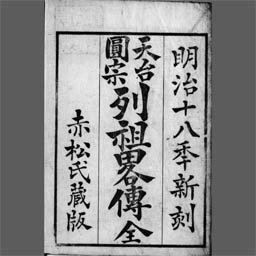 明治十八年新刻
天台
圓宗
列祖畧傳 全
赤松氏藏版